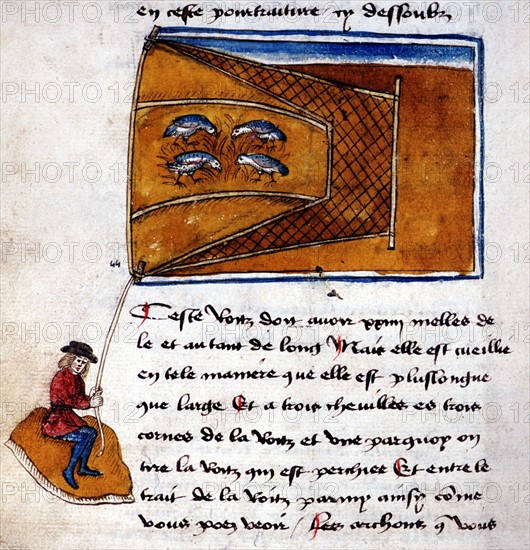 en ceste pourtraiture cy dessoubz
44
Ceste Roitz doit avoir xxiiii melles de
le et autant de long Mais elle est cueillie
en tele maniere que elle est pluslongue
que large Et a trois chevilles es trois
cornes de la Roitz et une parquoy on
tire la Roitz qui est perchiee Et entre le
trait de la Roitz parmy ainsy cōme
vous poez veoir / Les archons q̄ vous
PHOTO 12